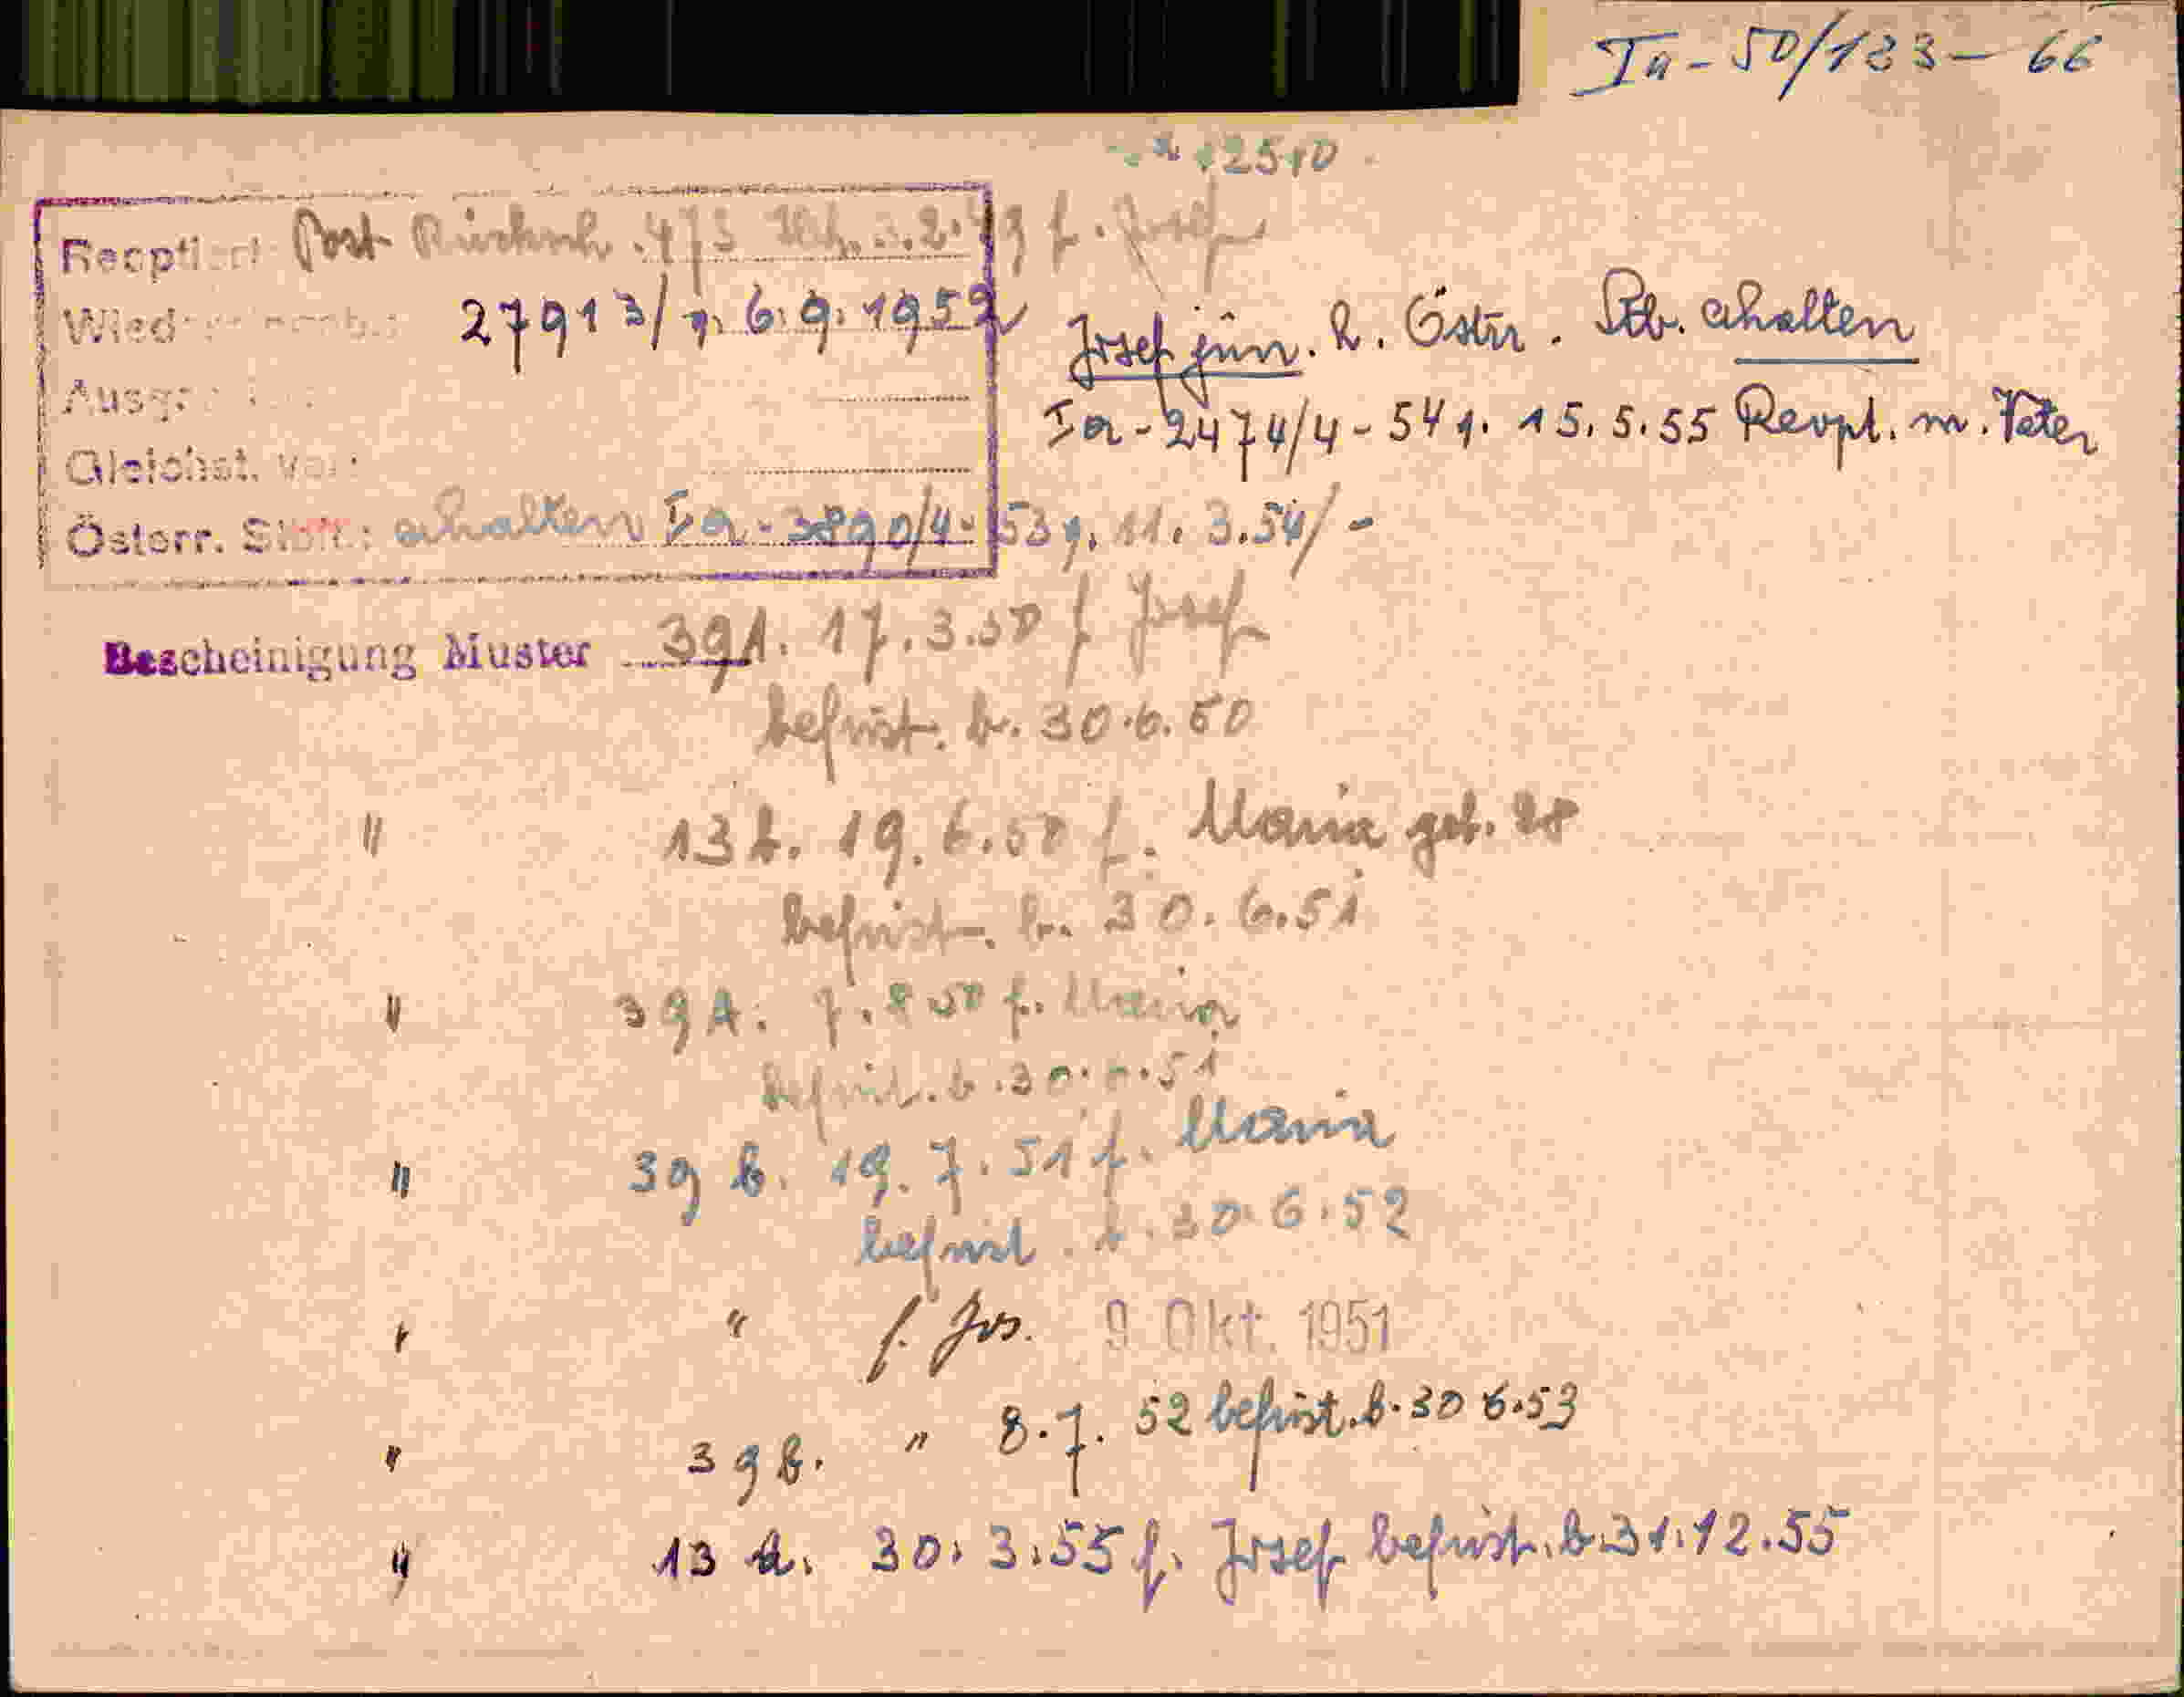 Ia - 50/183 - 66
2510
Reoptiert Post Rücksch. 473 2.49 f. Josef
27913/7. 6. 9. 1952
Josef jun. h. Östr. Stb. erhalten
Ia - 2474/4 - 54 v. 15. 5. 55 Reopt. m. Vater
Gleichst. v.
Österr. Stb.: erhalten Ia - 3890/4 - 53 v. 11. 3. 54/-
Bescheinigung Muster 39A. 17. 3. 50 f Josef
befrist. b. 30. 6. 50
" 13 b. 19. 6. 50 f. Maria geb. 28
befrist. b. 30. 6. 51
" 39 A. 7. 8 50 f. Maria
befrist. b. 30. 6. 51
" 39 b. 19. 7. 51 f. Maria
befrist. b. 30. 6. 52
" " f. Jos. 9. Okt. 1951
" 39 b. " 8. 7. 52 befrist. b. 30 6. 53
" 13 a. 30. 3. 55 f. Josef befrist. b. 31. 12. 55